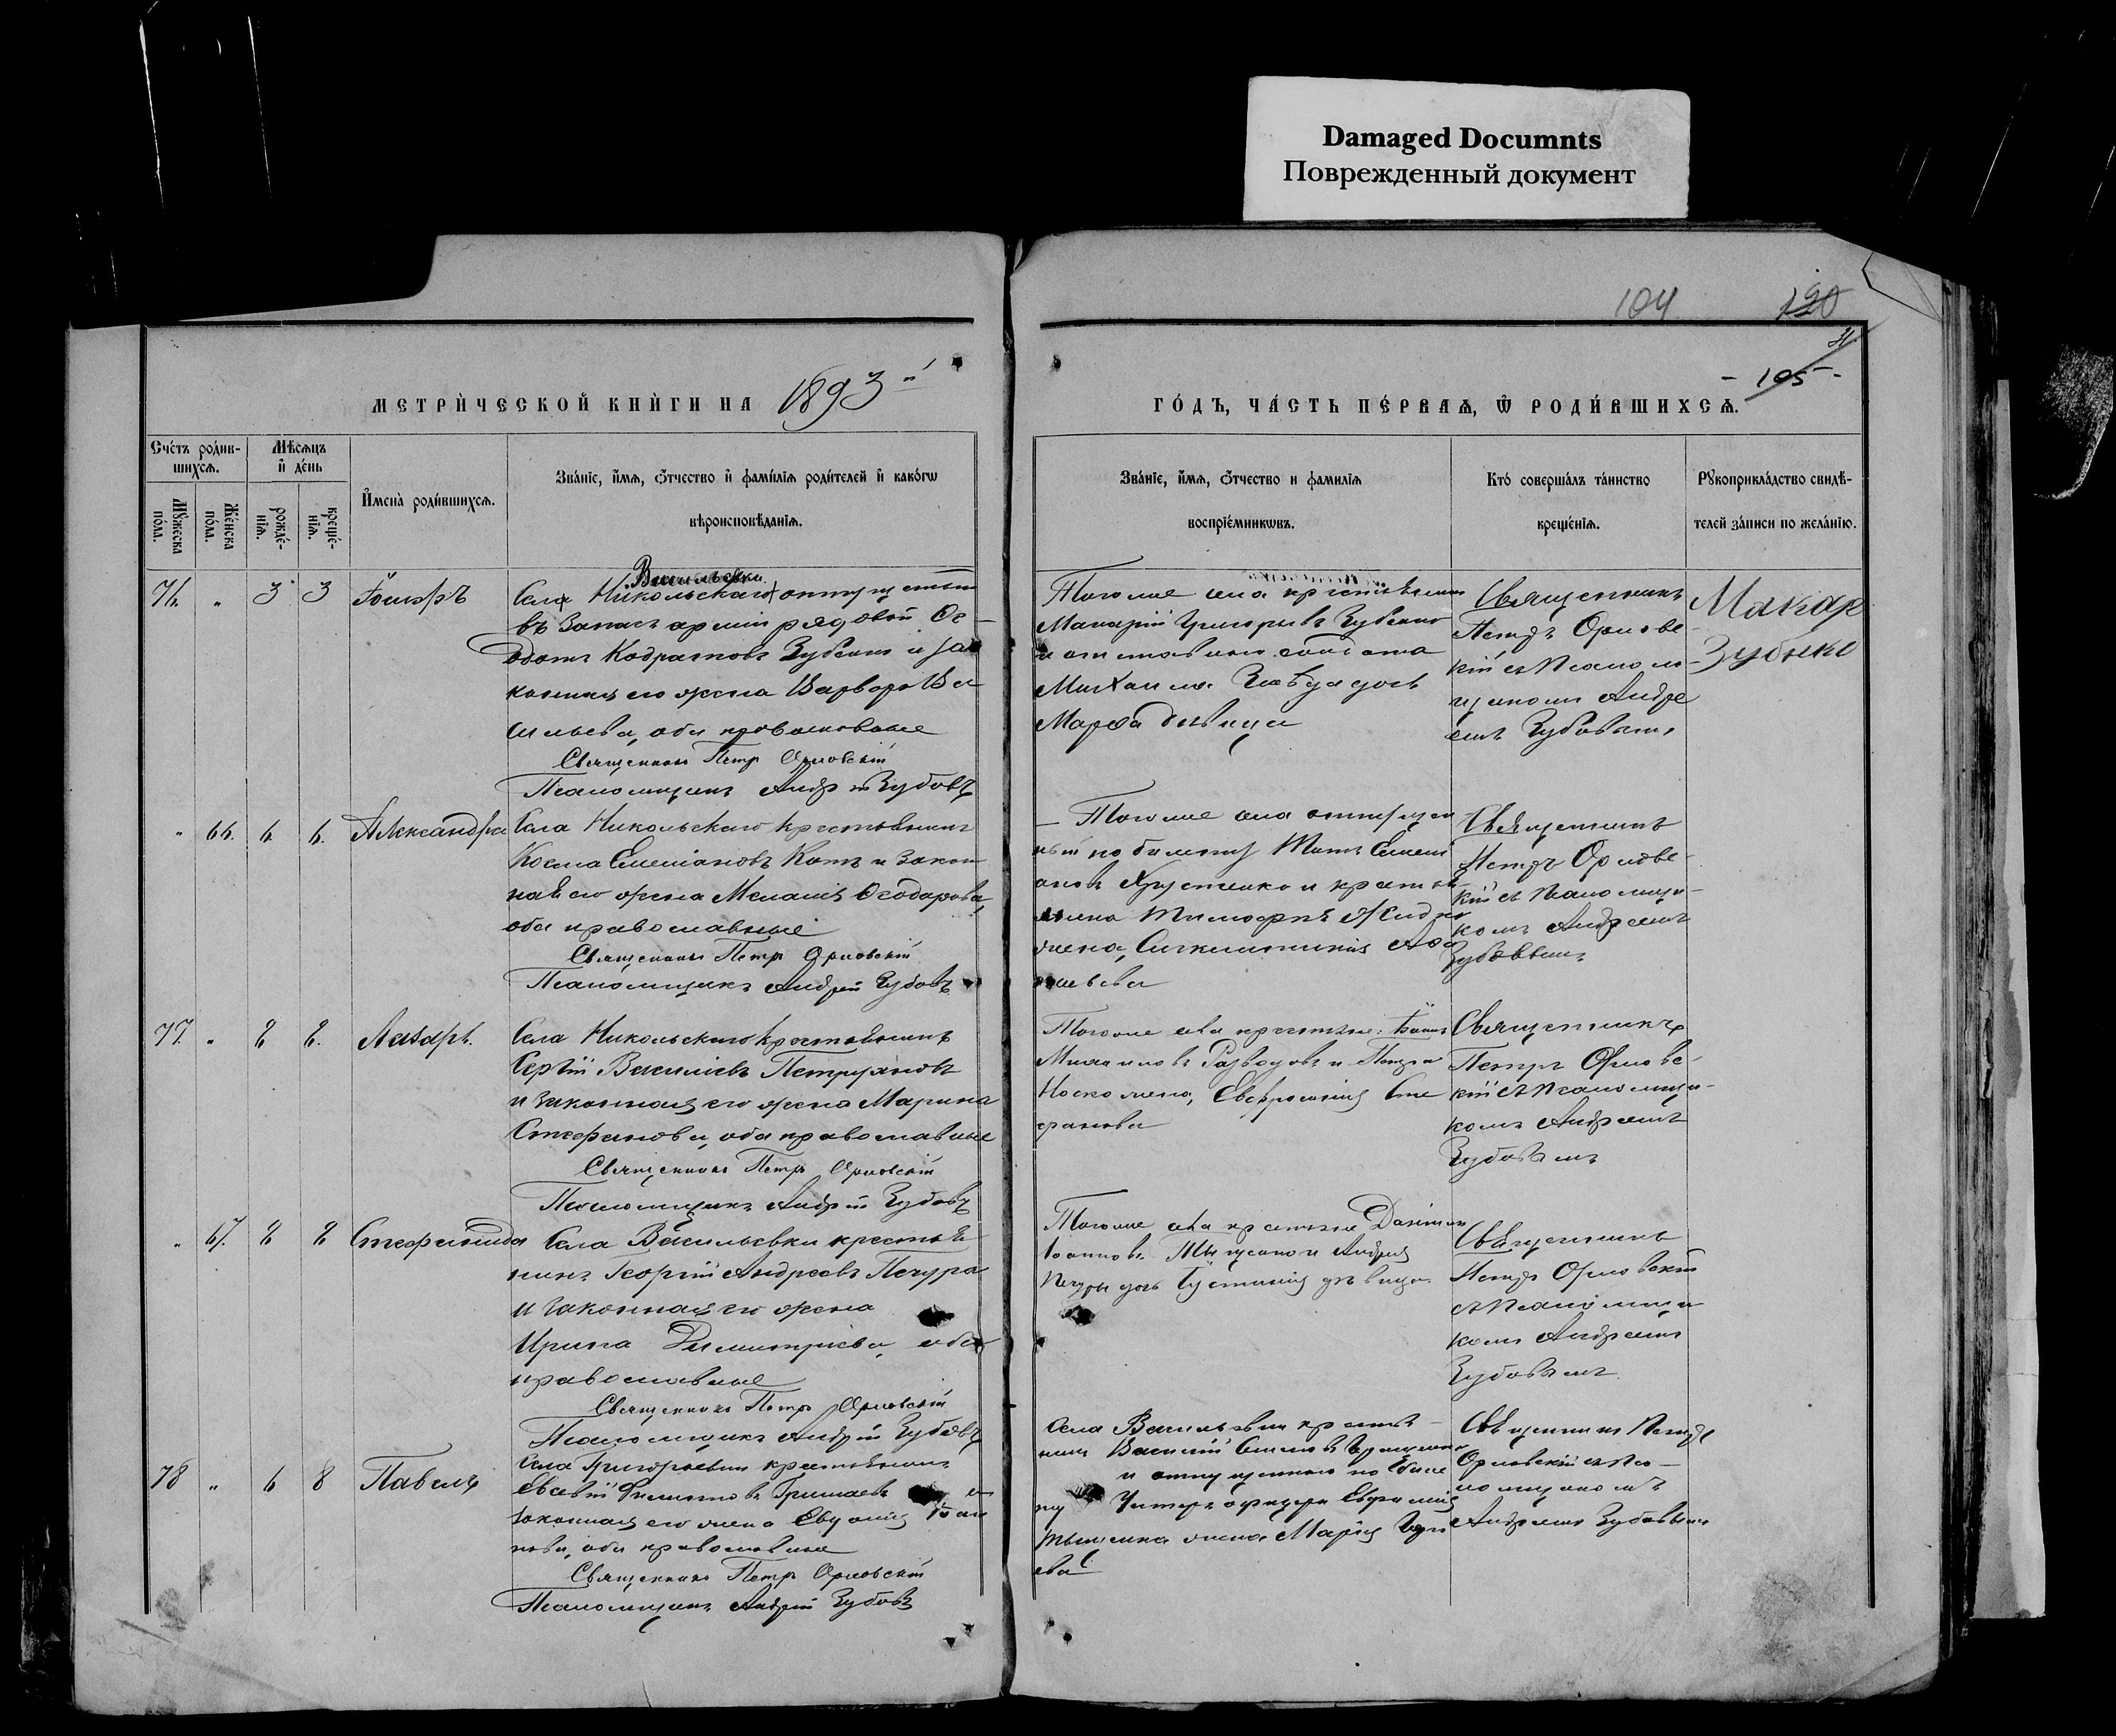 Damaged Documnts
Поврежденный документ
104
190
31
- 105 -
МЕТРИЧЕСКОЙ КНИГИ НА 1893й
ГОДЪ, ЧАСТЬ ПЕРВАЯ, Ѡ РОДИВШИХСЯ.
Счетъ родив-
шихся.
Мѣсяцъ
и день
Мужеска
пола.
Женска
пола.
рожде-
нія.
креще-
нія.
Имена родившихся.
Званіе, имя, отчество и фамилія родителей и какогѡ
вѣроисповѣданія.
Званіе, имя, отчество и фамилія
воспріемникѡвъ.
Кто совершалъ таинство
крещенія.
Рукоприкладство свидѣ-
телей записи по желанію.
76. „ 3 3
Васильевки
Села Никольскаго отпущеный
въ запасъ арміи рядовой
Кодратовъ Зубенко и за
конная его жена Варвара Ва
сильева, оба православные
Священникъ Петр Орловскій
Псаломщикъ Андрей Зубовъ
Тогоже села крестьянинъ
Макарій Григорьевъ Зубенко
и отставного солдата
Михаила дочь
Марѳа дѣвица
Священникъ
Петръ Орловс
кій съ Псалом
щикомъ Андре
емъ Зубовымъ
Макар
Зубнко
„ 66. 6. 6. Александра
Села Никольскаго крестьянинъ
Косма Емеліановъ Котъ и закон
ная его жена Меланія Ѳеодорова,
оба православные
Священникъ Петр Орловскій
Псаломщикъ Андрей Зубовъ
Тогоже села отпущен
ный по билету Емелі
ановъ и крестья
нина Тимофея
жена,
Священникъ
Петръ Орловс-
кій съ Псаломщи-
комъ Андреемъ
Зубовымъ
77. „ 8 8. Лазарь.
Села Никольскаго крестьянинъ
Сергій Василіевъ
и законная его жена Марина
Стефанова, оба православные
Священникъ Петръ Орловскій
Псаломщикъ Андрей Зубовъ
Тогоже села крестьяне: Іоаннъ
и Петра
жена, Евфросинія Сте
фанова
Священникъ
Петръ Орловс-
кій съ Псаломщи-
комъ Андреемъ
Зубовымъ
„ 67. 8 8 Стефанида
Села Васильевки крестья
нинъ Георгій Андреевъ Печура
и законная его жена
Ирина Димитріева, оба
православные
Священникъ Петръ Орловскій
Псаломщикъ Андрей Зубовъ
Тогоже села крестьяне
Іоанновъ и Андрея
дочь Іустинія дѣвица
Священникъ
Петръ Орловскій
съ Псаломщи
комъ Андреемъ
Зубовымъ
78 „ 6 8 Павелъ
Села Григорьевки крестьянинъ
Евсевій Филиповъ и
законная его жена Евдокія Іоан
нова, оба православные
Священникъ Петръ Орловскій
Псаломщикъ Андрей Зубовъ
Села Васильевки крестья-
нинъ Василій
и отпущенного по биле
ту Унтеръ офицера
жена Марія
ева
Священникъ Петръ
Орловскій съ Пса-
ломщикомъ
Андреемъ Зубовымъ